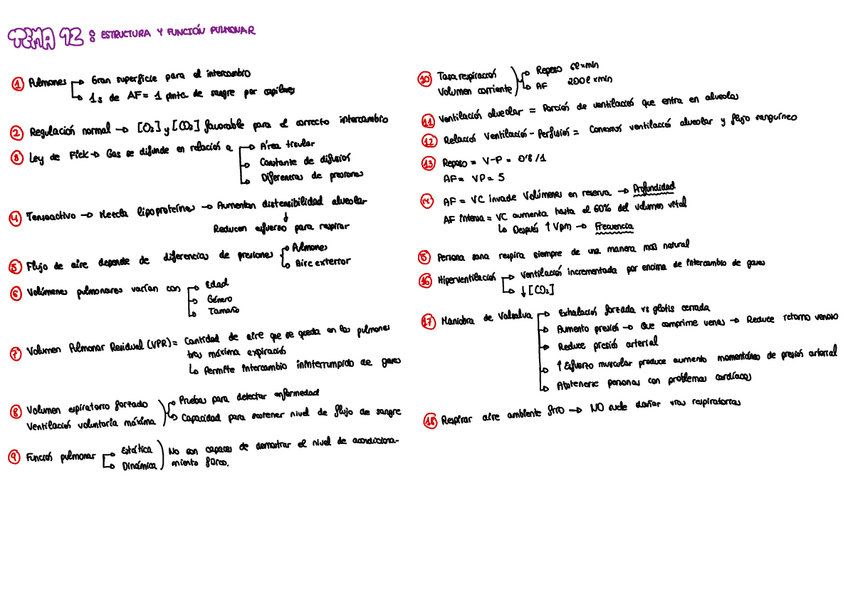 TEMA 12: ESTRUCTURA Y FUNCIÓN PULMONAR
① Pulmones → Gran superficie para el intercambio
→ 1s de AF = 1 pinta de sangre por capilares
② Regulación normal → [O₂] y [CO₂] favorable para el correcto intercambio
③ Ley de Fick → Gas se difunde en relación a → Área tisular
→ Constante de difusión
→ Diferencias de presiones
④ Tensoactivo → Mezcla lipoproteínas → Aumentan distensibilidad alveolar
↓
Reducen esfuerzo para respirar
⑤ Flujo de aire depende de diferencias de presiones → Pulmones
→ Aire exterior
⑥ Volúmenes pulmonares varían con → Edad
→ Género
→ Tamaño
⑦ Volumen Pulmonar Residual (VPR) = Cantidad de aire que se queda en los pulmones
tras máxima expiración
↳ Permite intercambio ininterrumpido de gases
⑧ Volumen espiratorio forzado → Pruebas para detectar enfermedad
Ventilación voluntaria máxima → Capacidad para sostener nivel de flujo de sangre
⑨ Función pulmonar → Estática ) No son capaces de demostrar el nivel de acondiciona-
→ Dinámica ) miento físico.
⑩ Tasa respiración → Reposo 6l×min
Volumen corriente → AF 200l×min
⑪ Ventilación alveolar = Porción de ventilación que entra en alveolos
⑫ Relación Ventilación-Perfusión = Consumos ventilación alveolar y flujo sanguíneo
⑬ Reposo = V-P = 0'8/1
AF = VP = 5
⑭ AF = VC invade Volúmenes en reserva → Profundidad
AF intensa = VC aumenta hasta el 60% del volumen vital
↳ Después ↑ Vpm → Frecuencia
⑮ Persona sana respira siempre de una manera más natural
⑯ Hiperventilación → Ventilación incrementada por encima de intercambio de gases
→ ↓[CO₂]
⑰ Maniobra de Valsalva → Exhalación forzada vs glotis cerrada
→ Aumento presión → Que comprime venas → Reduce retorno venoso
→ Reduce presión arterial
→ ↑ Esfuerzo muscular produce aumento momentáneo de presión arterial
→ Abstenerse personas con problemas cardíacos
⑱ Respirar aire ambiente frío → NO suele dañar vías respiratorias